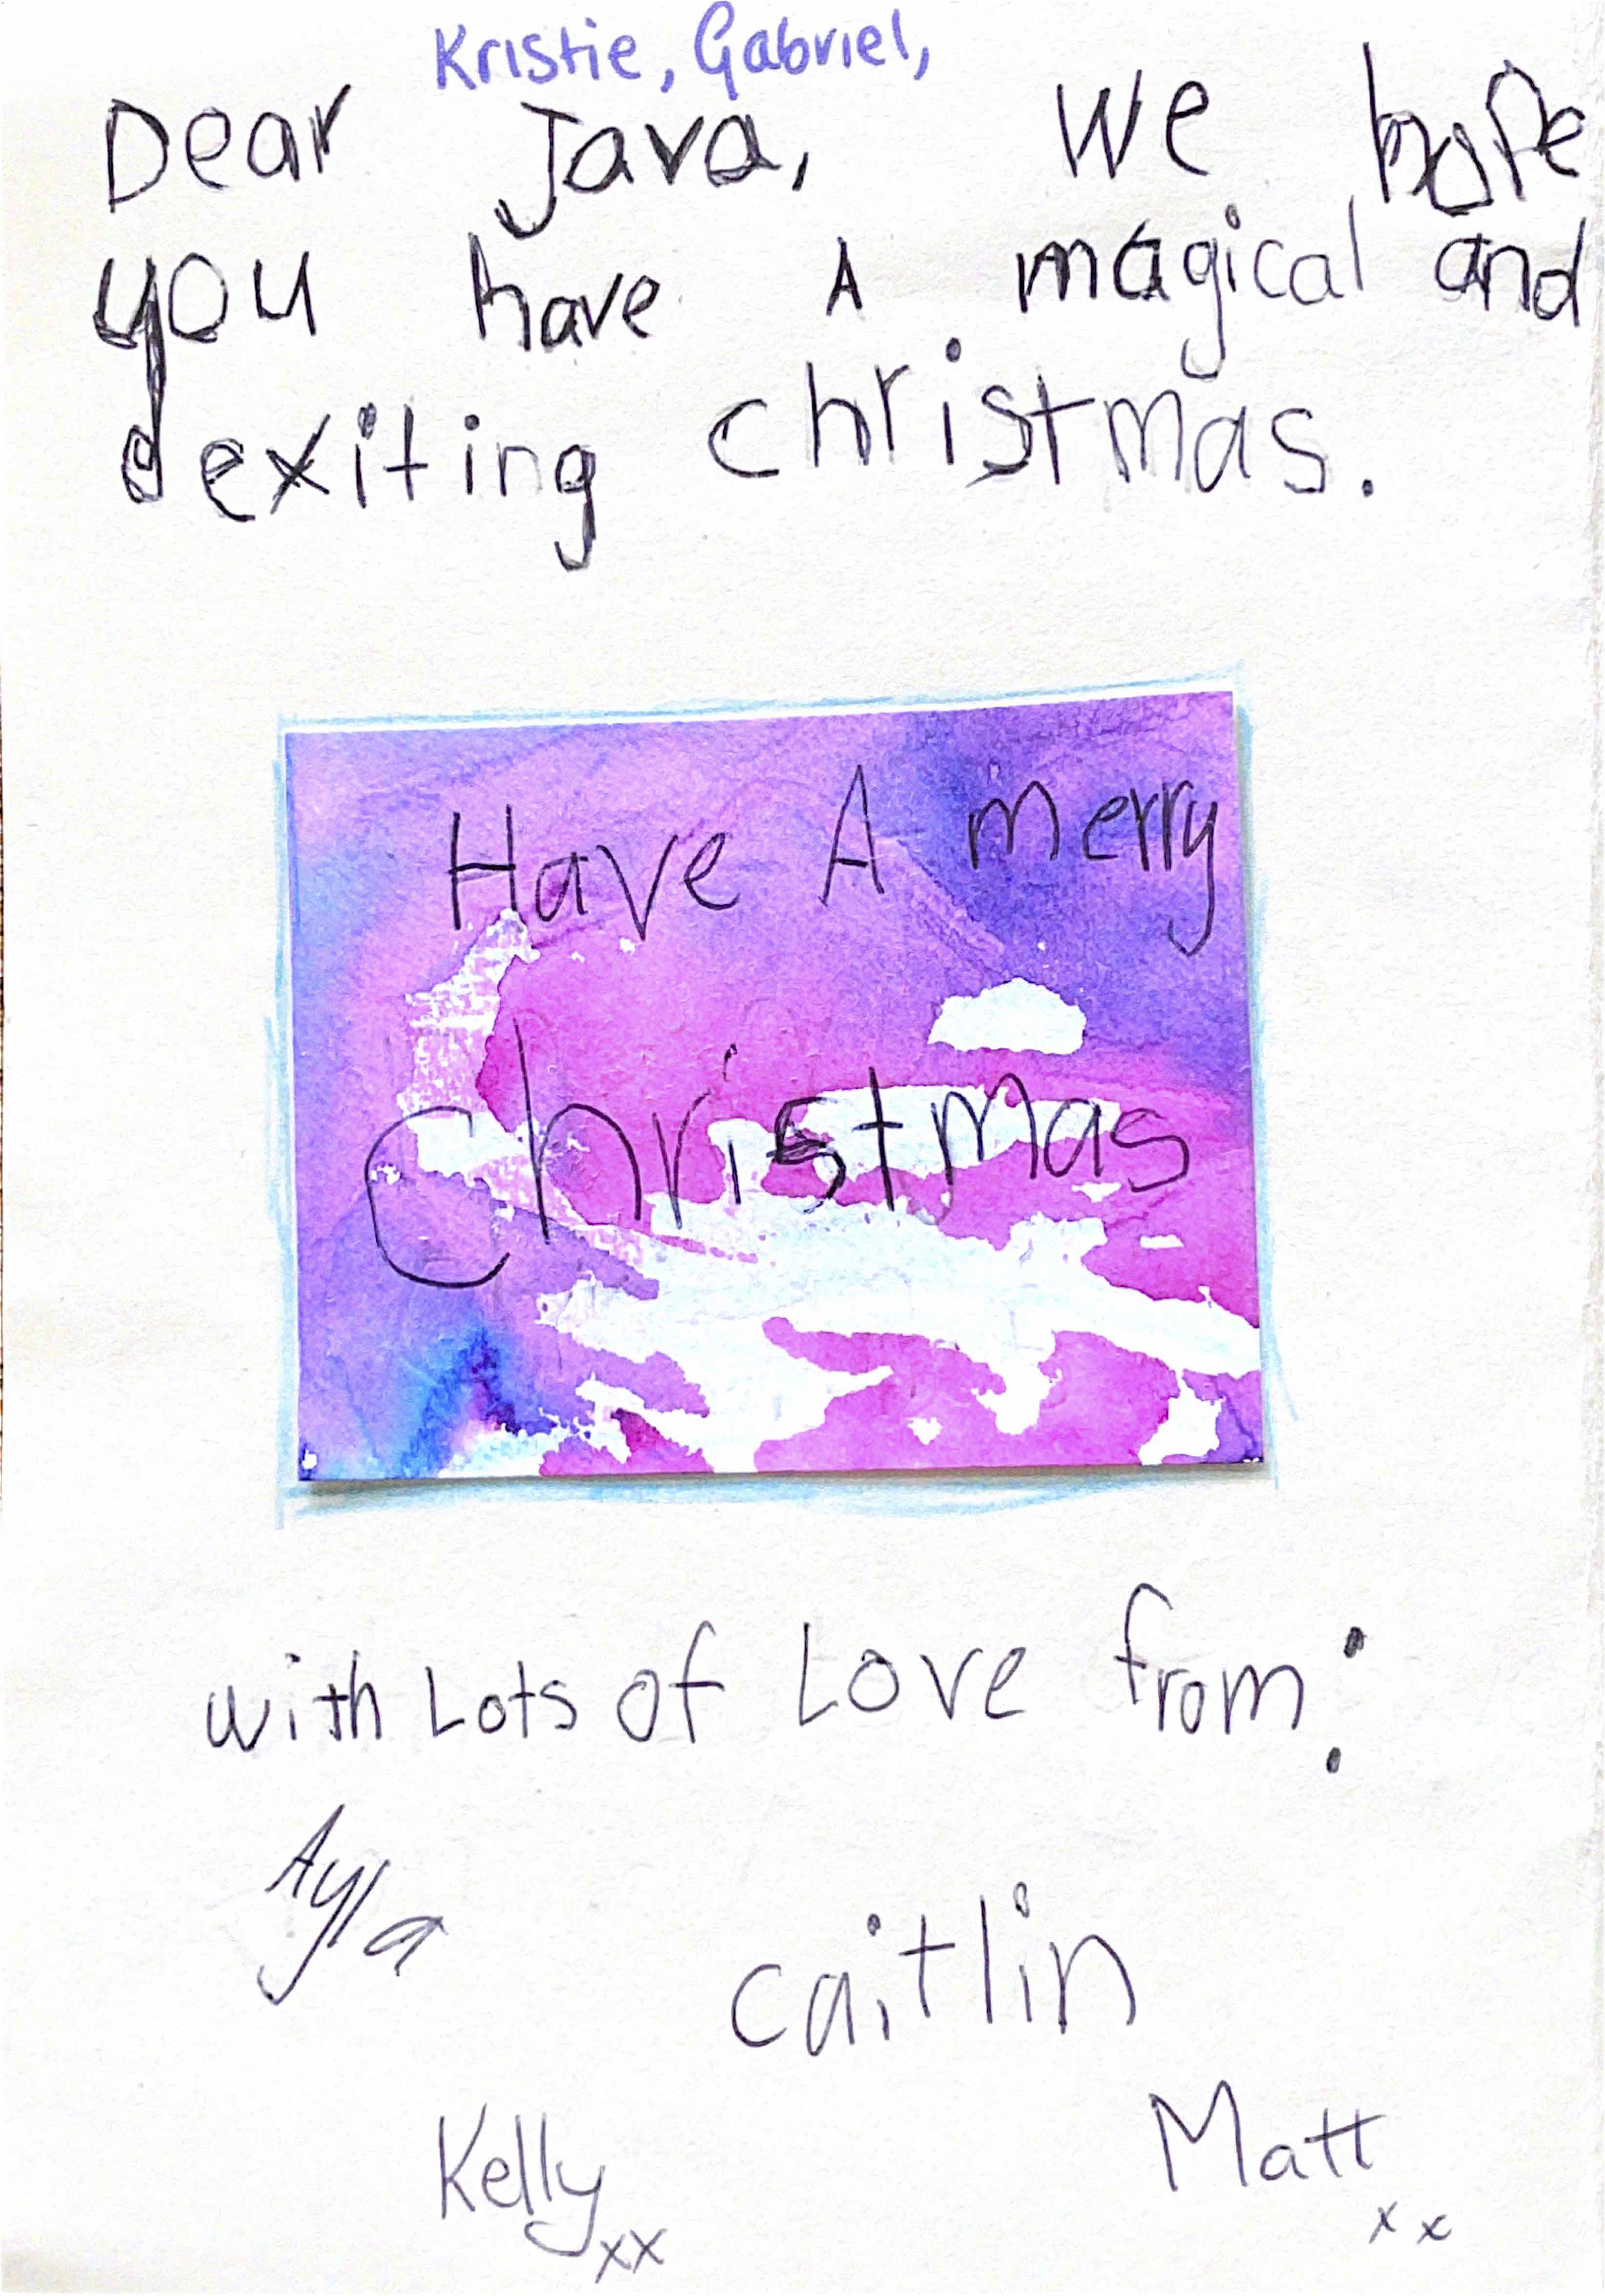 Kristie, Gabriel,
Dear Java, We hope
you have A magical and
exiting christmas.
Have A merry
christmas
with Lots of Love from:
Ayla
caitlin
Kelly xx
Matt xx